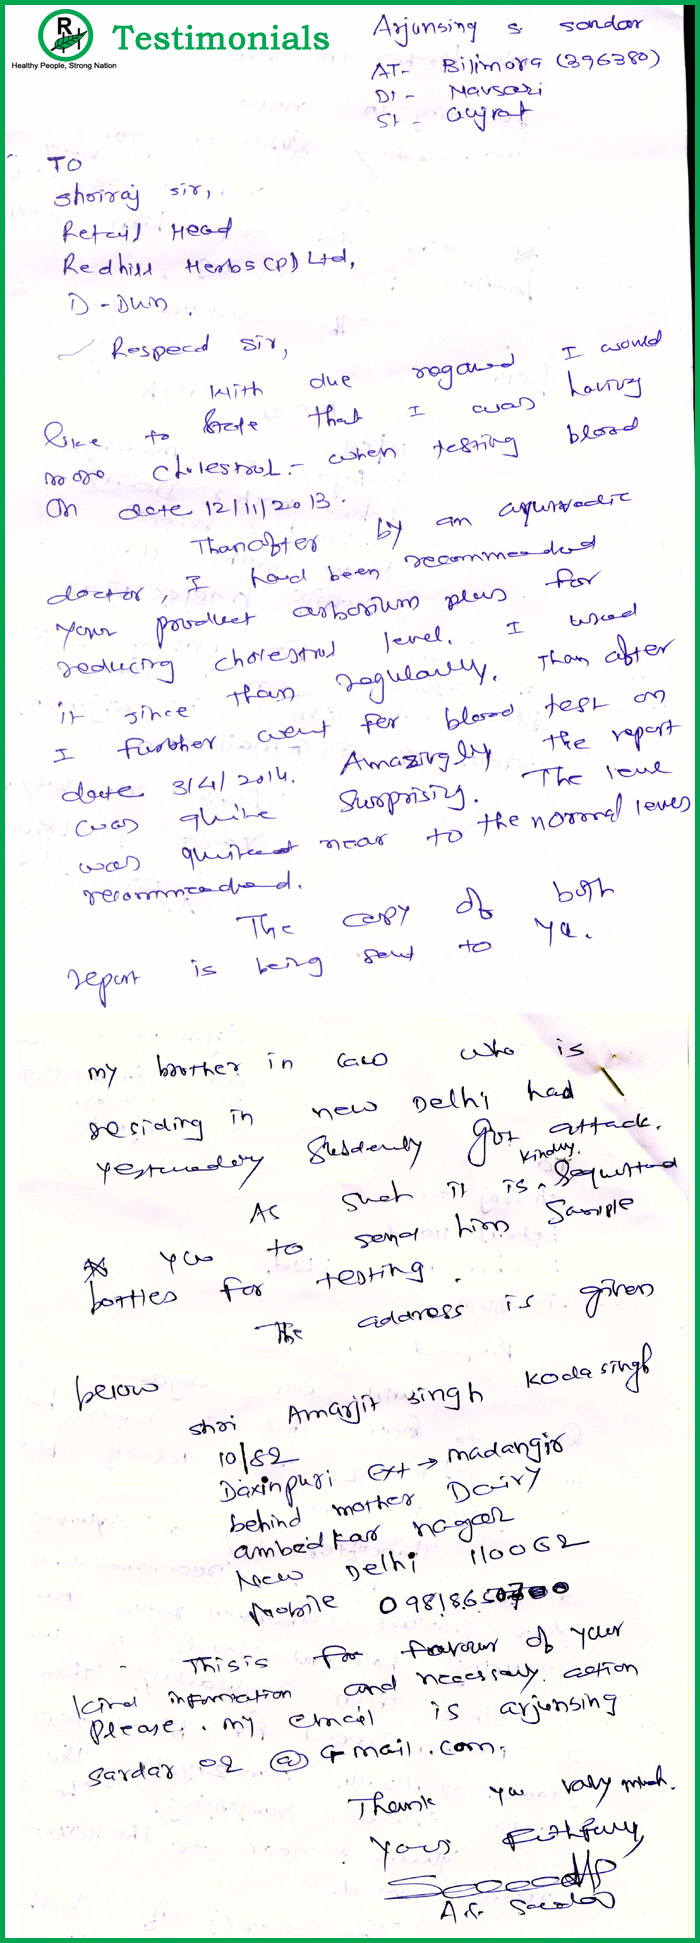 RH
Testimonials
Healthy People, Strong Nation
Arjunsing s sardar
AT- Bilimora (396380)
DI - Navsari
St - Gujrat
TO
Shriraj sir,
Retail Head
Redhill Herbs (P) Ltd,
D-Dun.
Respecd Sir,
With due regard I would
like to state that I was having
more cholestrol - when testing blood
On date 12/11/2013.
Thanafter by an ayurvedic
doctor, I had been recommended
your product arborium plus for
reducing cholestrol level. I used
it since than regularly. Than after
I further went for blood test on
date 3/4/2014. Amazingly the report
was quite surprising. The leve
was quite near to the normal level
recommended.
The copy of both
report is being sent to you.
my brother in law who is
residing in new Delhi had
yesterday suddenly got attack.
As such it is kindly requested
you to send him sample
bottles for testing.
The address is given
below
Shri Amarjit singh Koda singh
10/82
Daxinpuri Ext → madangir
behind mother Dairy
ambedkar nagar
New Delhi 110062
Mobile
This is for favour of your
kind information and necessary action
please. my email is arjunsing
sardar 02 @ Gmail.com.
Thank you very much.
Yours Faithfully
A.S. Sardar